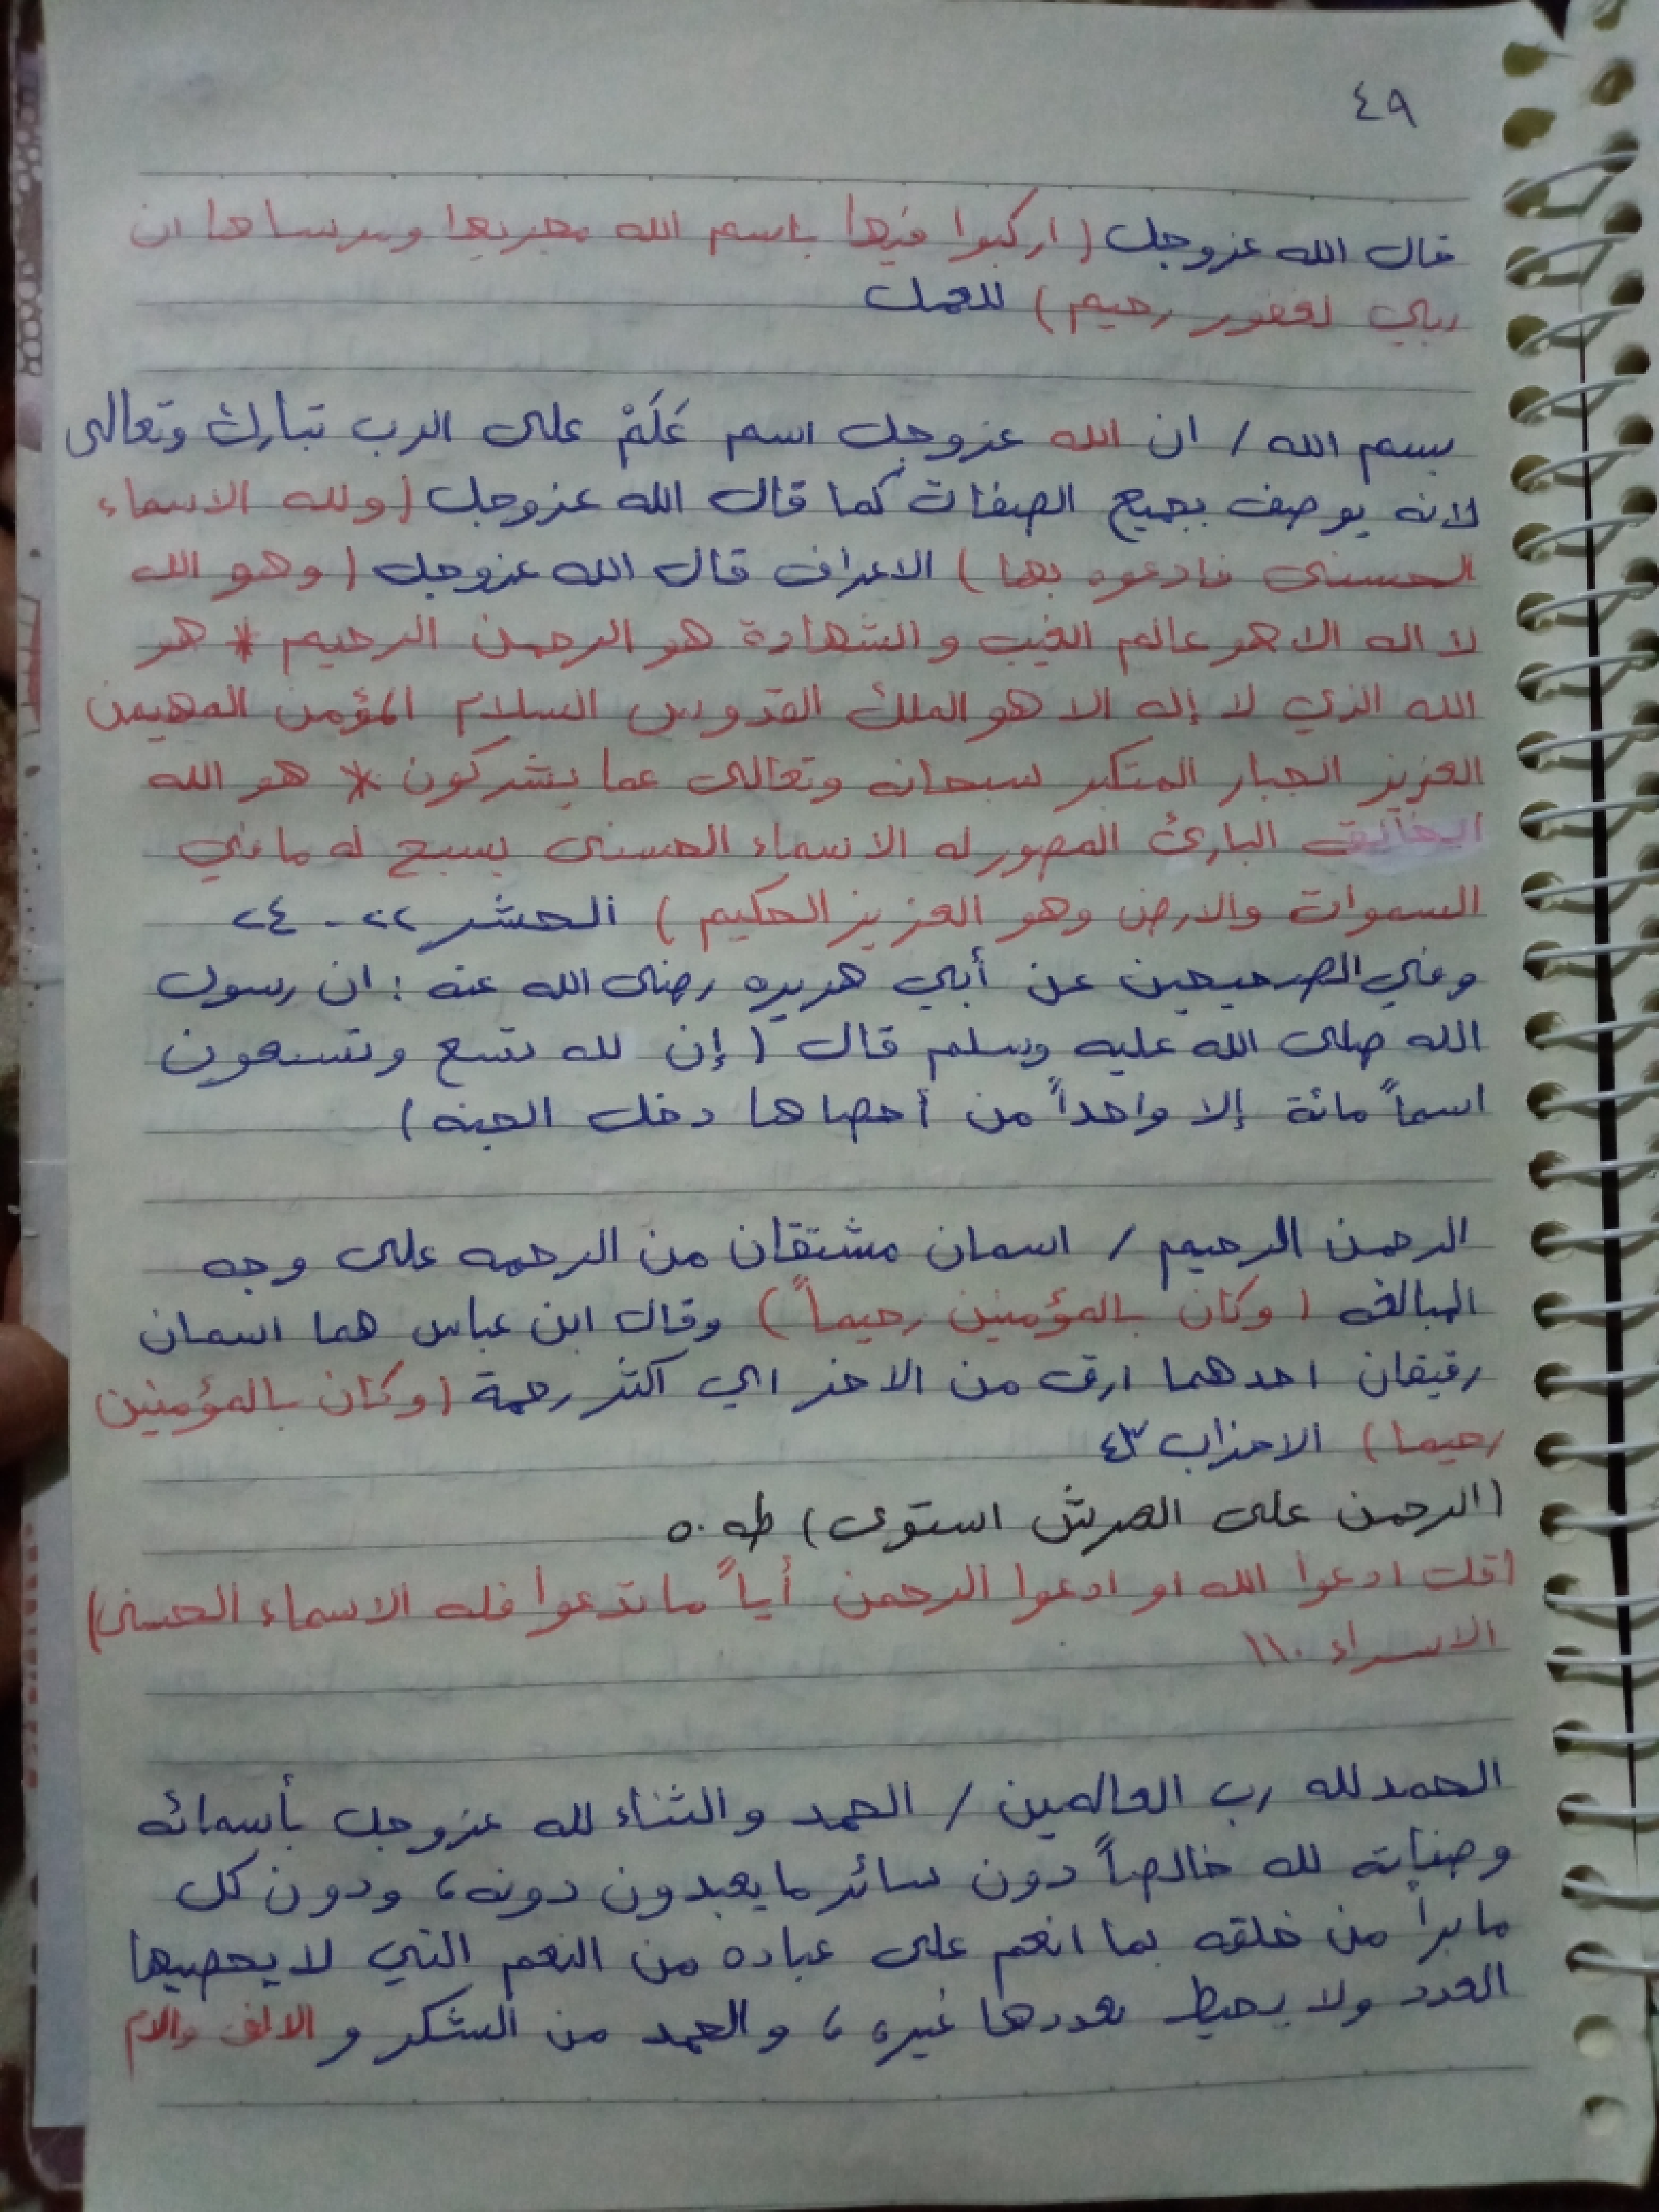 ٤٩
قال الله عزوجل (اركبوا فيها باسم الله مجريها ومرساها ان
ربي لغفور رحيم) للعمل
بسم الله / ان الله عزوجل اسم عَلَمْ على الرب تبارك وتعالى
لانه يوصف بجميع الصفات كما قال الله عزوجل (ولله الاسماء
الحسنى فادعوه بها) الاعراف قال الله عزوجل (وهو الله
لا اله الا هو عالم الغيب والشهادة هو الرحمن الرحيم * هو
الله الذي لا إله الا هو الملك القدوس السلام المؤمن المهيمن
العزيز الجبار المتكبر سبحانه وتعالى عما يشركون * هو الله
الخالق البارئ المصور له الاسماء الحسنى يسبح له ما في
السموات والارض وهو العزيز الحكيم) الحشر ٢٢ - ٢٤
وفي الصحيحين عن أبي هريره رضى الله عنه : ان رسول
الله صلى الله عليه وسلم قال (إن لله تسع وتسعون
اسماً مائة إلا واحداً من أحصاها دخل الجنه)
الرحمن الرحيم / اسمان مشتقان من الرحمه على وجه
المبالغه (وكان بالمؤمنين رحيماً) وقال ابن عباس هما اسمان
رقيقان احدهما ارق من الاخر اي اكثر رحمة (وكان بالمؤمنين
رحيما) الاحزاب ٤٣
(الرحمن على العرش استوى) طه ٥٠
(قل ادعوا الله او ادعوا الرحمن أياً ما تدعوا فله الاسماء الحسنى)
الاسراء ١١٠
الحمد لله رب العالمين / الحمد والثناء لله عزوجل بأسمائه
وصفاته لله خالصاً دون سائر ما يعبدون دونه، ودون كل
ما برأ من خلقه بما انعم على عباده من النعم التي لا يحصيها
العدد ولا يحيط بعددها غيره، والحمد من الشكر و الالف والام